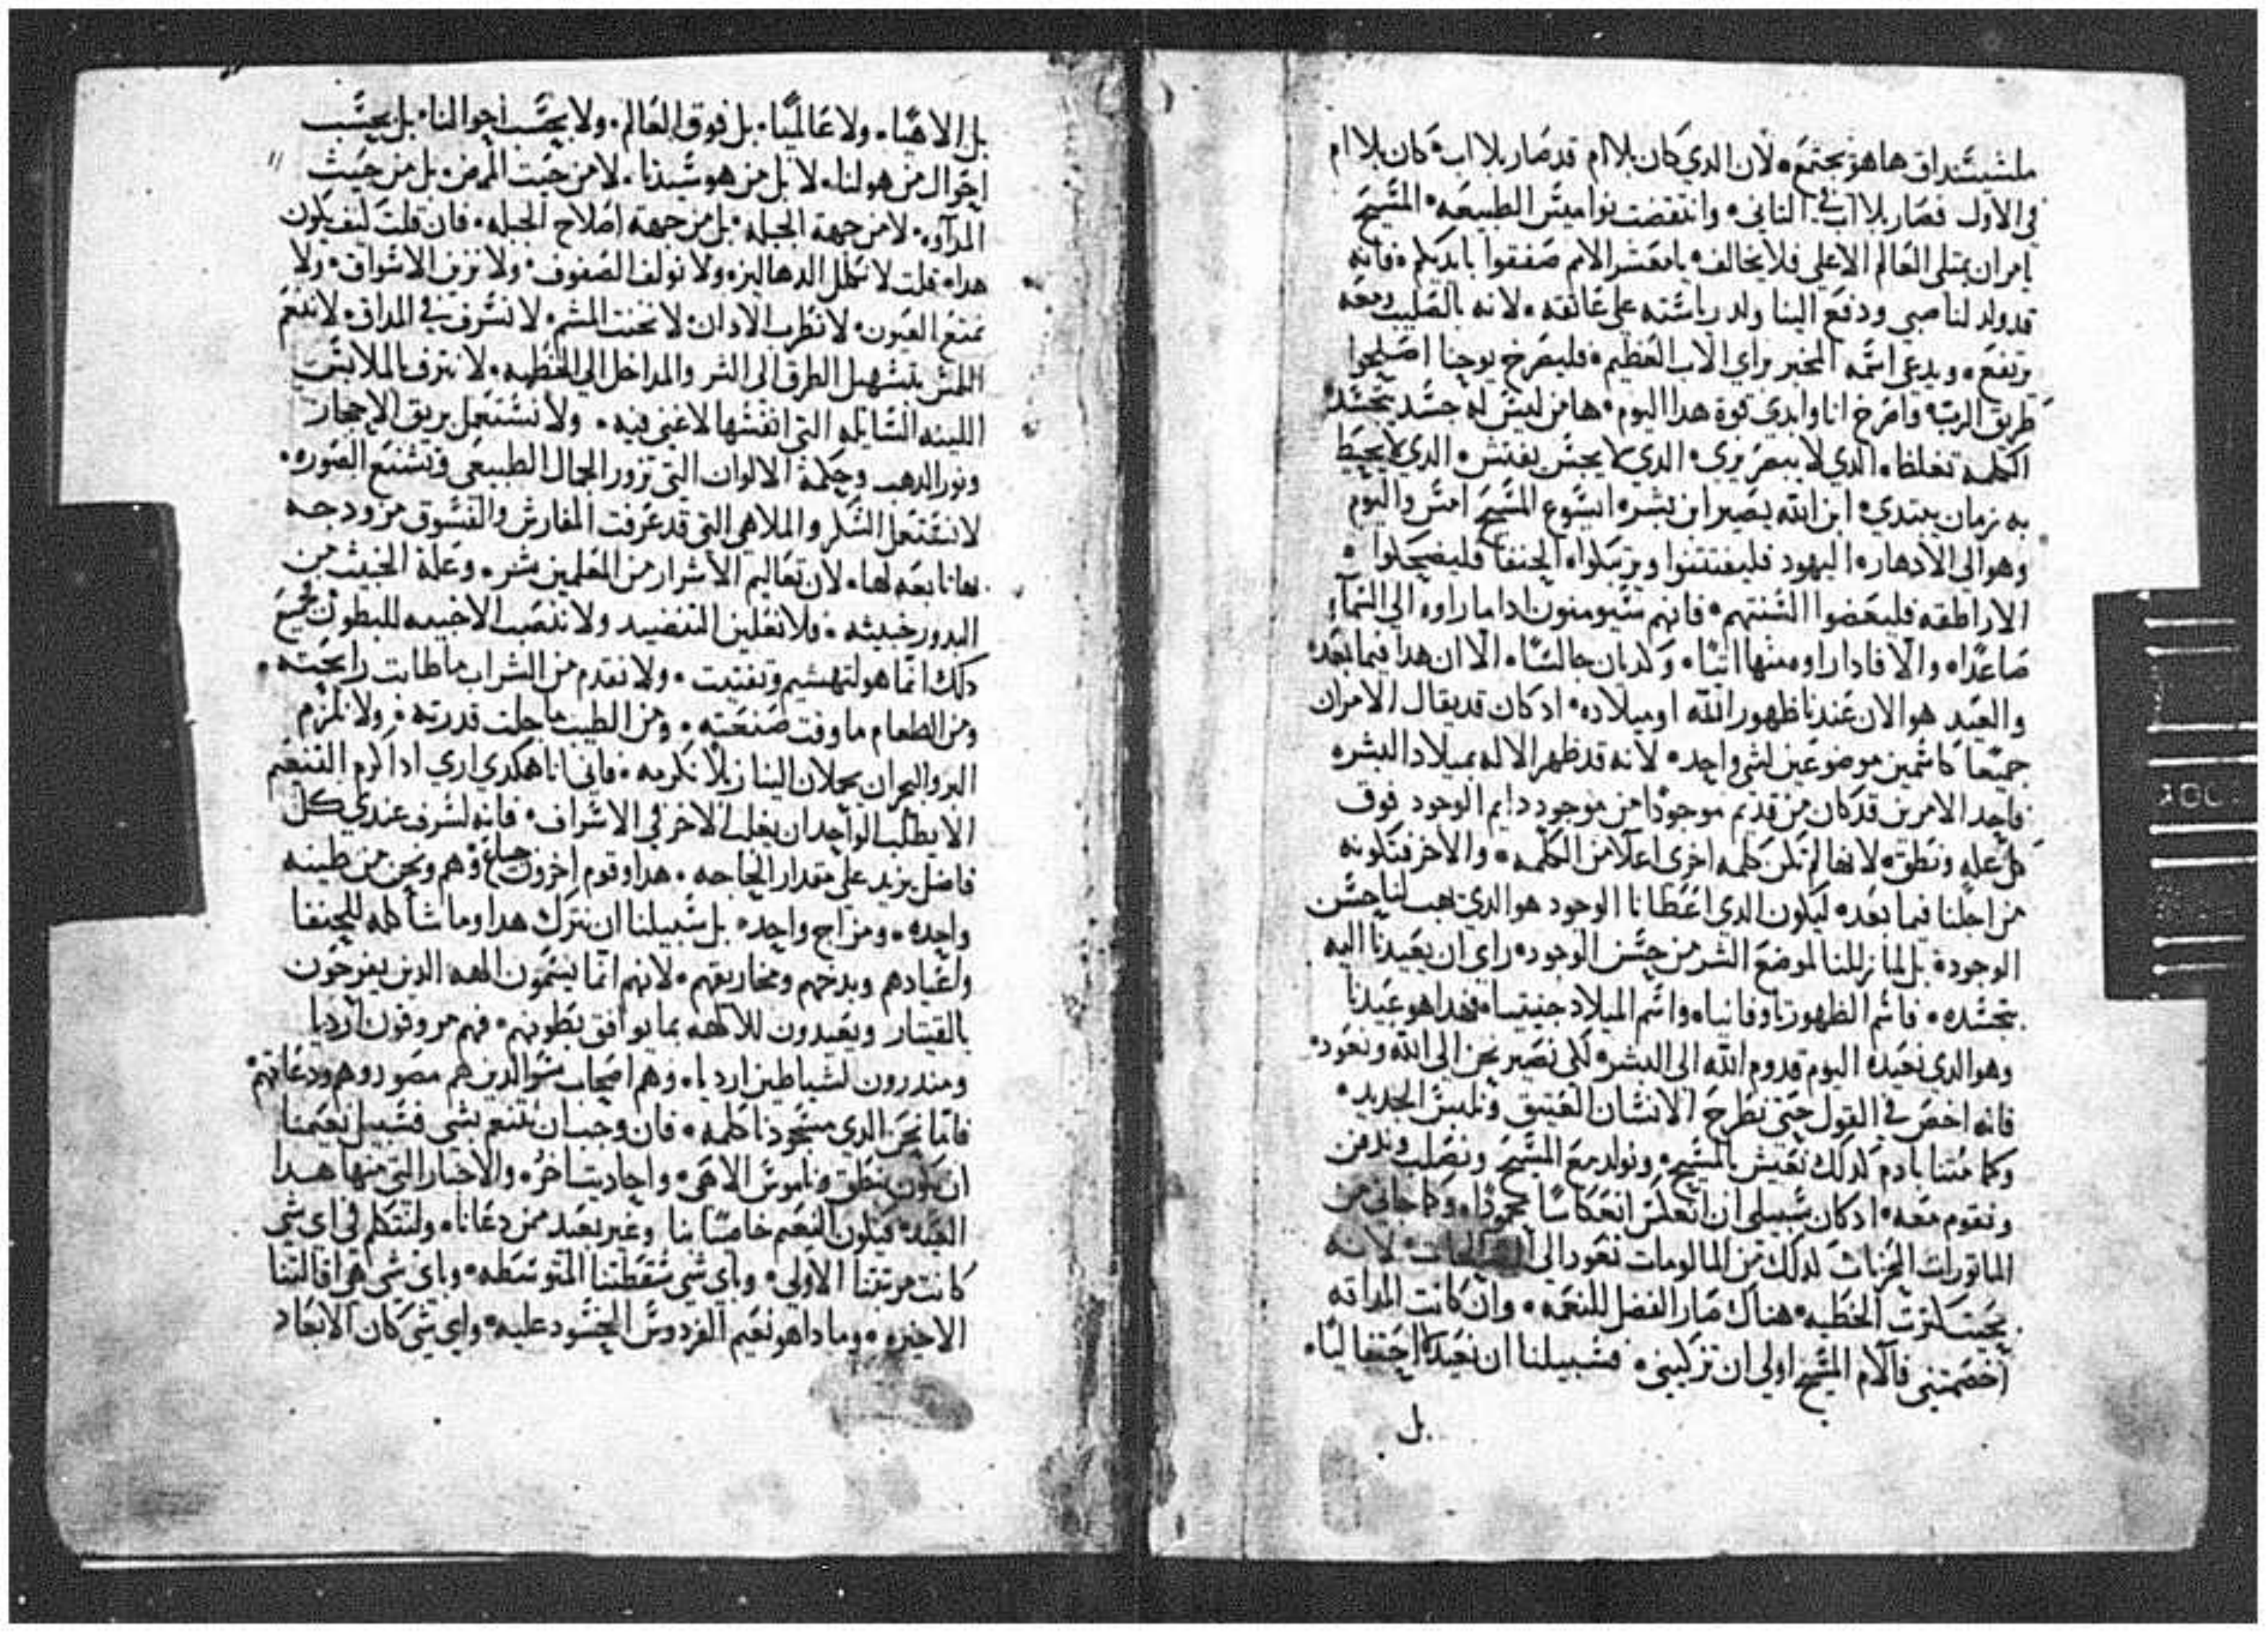 ملشيشداق هاهو يجتمع، لان الدي كان بلا ام قد صار بلا اب، كان بلا ام
في الاول فصار بلا اب في الثاني، وانتقضت نواميس الطبيعه، المسيح
امر ان يمتلى العالم الاعلى فلا يخالف، يا معشر الامم صفقوا بايديكم، فانه
قد ولد لنا صبي ودفع الينا ولد رياسته على عاتقه، لانه بالصليب معه
يرتفع، ويدعى اسمه المخبر براي الاب العظيم، فليصرخ يوحنا اصلحوا
طريق الرب، واصرخ انا وابدي قوة هدا اليوم، ها من ليس له جسد يتجسد
الكلمه تغلظا، الدي لا يبصر يرى، الدي لا يجس يفتش، الدي لا يحيط
به زمان يبتدي، ابن الله يصير ابن بشر، ايسوع المسيح امس واليوم
وهو الى الادهار، اليهود فليفتتنوا ويرتبكوا، الحنفا فليضحكوا،
الاراطقه فليعضوا السنتهم، فانهم سيومنون ادا ما راوه الى السماء
صاعدا، والا فادا راوه منها اتيا، وكديان جالسا، الا ان هدا فيما بعد،
والعيد هو الان عندنا ظهور الله او ميلاده، اد كان قد يقال الامران
جميعا كاسمين موضوعين لشي واحد، لانه قد ظهر الاله بميلاد البشره
فاحد الامرين قد كان من قديم موجودا من موجود دايم الوجود فوق
كل عله ونطق، لانها لم تكن كلمه اخرى اعلا من الكلمه، والاخر فتكونه
من اجلنا فيما بعد، ليكون الدي اعطانا الوجود هو الدي يهب لنا حسن
الوجود، بل لما زللنا لموضع الشر من حسن الوجود، راى ان يعيدنا اليه
بتجسده، فاسم الظهور تاوفانيا، واسم الميلاد جنيسيا، فهدا هو عيدنا
وهو الدي نعيده اليوم قدوم الله الى البشر، لكي نصير نحن الى الله ونعود،
فانه اخص في القول حتى نطرح الانسان العتيق ونلبس الجديد،
وكما متنا بادم كدلك نعيش بالمسيح، ونولد مع المسيح ونصلب وندفن
ونقوم معه، اد كان سبيلي ان انعكس انعكاسا محمودا، وكما جاني من
الماتورات المحزنات كدلك من المالومات نعود الى الصالحات، لانه
بحيث كثرت الخطيه، هناك صار الفضل للنعمه، وان كانت المداقه
اخصمتني فالام المسيح اولى ان تزكيني، فسبيلنا ان نعيد احتفاليا،
بل
بل الاهيا، ولا عالميا، بل فوق العالم، ولا بحسب احوالنا، بل بحسب
احوال من هو لنا، لا بل من هو سيدنا، لا من حيث المرض، بل من حيث
المداواه، لا من جهة الجبله، بل من جهة اصلاح الجبله، فان قلت كيف يكون
هدا، قلت لا نكلل الدهاليز، ولا نولف الصفوف، ولا نزين الاسواق، ولا
نمتع العيون، لا نطرب الادان، لا نخنث المشم، لا نسرف في المداق، لا ننعم
اللمس بتسهيل الطرق الى الشر والمداخل الى الخطيه، لا نترف بالملابس
اللينه السايله التي انفسها لا غنى فيه، ولا نستعمل بريق الاحجار
ونور الدهب وحكمة الالوان التي تزور الجمال الطبيعي وتشنع الصوره،
لا نستعمل السكر والملاهي التي قد عرفت المفارش والفسوق مزدوجه
لها تابعه لها، لان تعاليم الاشرار من المعلمين شر، وغلة الخبيث من
البدور خبيثه، فلا نعلين التنضيد ولا ننصب الاخبيه للبطون جميع
دلك انما هو لتهشيم وتفتيت، ولا نقدم من الشراب ما طابت رايحته،
ومن الطعام ما وفت صنعته، ومن الطيب ما جلت قدرته، ولا نلزم
البر والبحر ان يحملان الينا زبلا نكرمه، فاني انا هكدى ارى ادا اكرم التنعم
الا يطلب الواحد ان يغلب الاخر في الاشراف، فانه لسرف عندي كل
فاضل يزيد على مقدار الحاجه، هدا وقوم اخرون جياع وهم ونحن من طينه
واحده، ومزاج واحد، بل سبيلنا ان نترك هدا وما شاكله للحنفا
واعيادهم وبدخهم ومخاريقهم، لانهم انما يسمون الهه الدين يفرحون
بالقيتار ويعبدون للالهه بما يوافق بطونهم، فهم مروقون ارديا
ومنذرون لشياطين ارديا، وهم اصحاب سو الدين هم مصوروهم ودعاتهم،
فاما نحن الدي مسجودنا كلمه، فان وجب ان نتنعم بشي فسبيل نعيمنا
ان يكون بنطق وناموس الاهي، واحاديث اخر، والاخبار التي منها هدا
العيد، فيكون النعيم خاصا بنا وغير بعيد ممن دعانا، ولنتكلم في اي شي
كانت مرتبتنا الاولى، وباي شي سقطتنا المتوسطه، وباي شي هي اقالتنا
الاخيره، وما دا هو نعيم الفردوس المحسود عليه، واي شي كان الابعاد